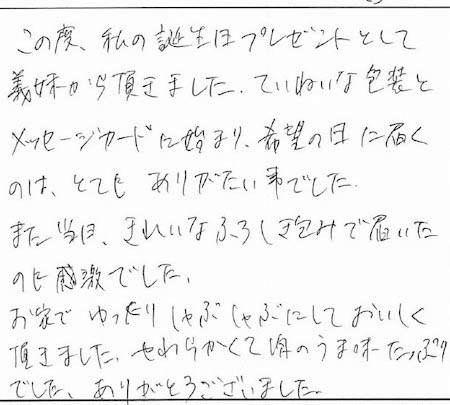 この度、私の誕生日プレゼントとして
義妹から頂きました。ていねいな包装と
メッセージカードに始まり、希望の日に届く
のは、とても ありがたい事でした。
また当日、きれいなふろしき包みで届いた
のに感激でした。
お家で ゆったりしゃぶしゃぶにしておいしく
頂きました。やわらかくて肉のうま味たっぷり
でした。ありがとうございました。